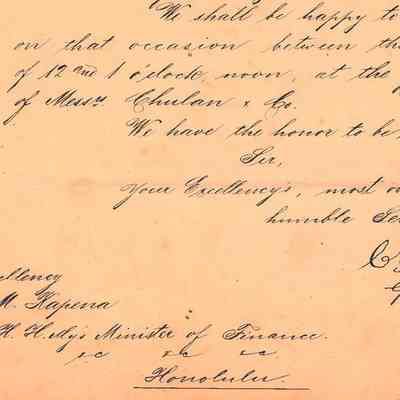 We shall be happy to
on that occasion between the
of 12 and 1 o'clock, noon, at the
of Messrs. Chulan & Co.
We have the honor to be,
Sir,
Your Excellency's, most o
humble Se
ellency
M. Kapena
H. H. My's Minister of Finance.
&c &c &c
Honolulu.